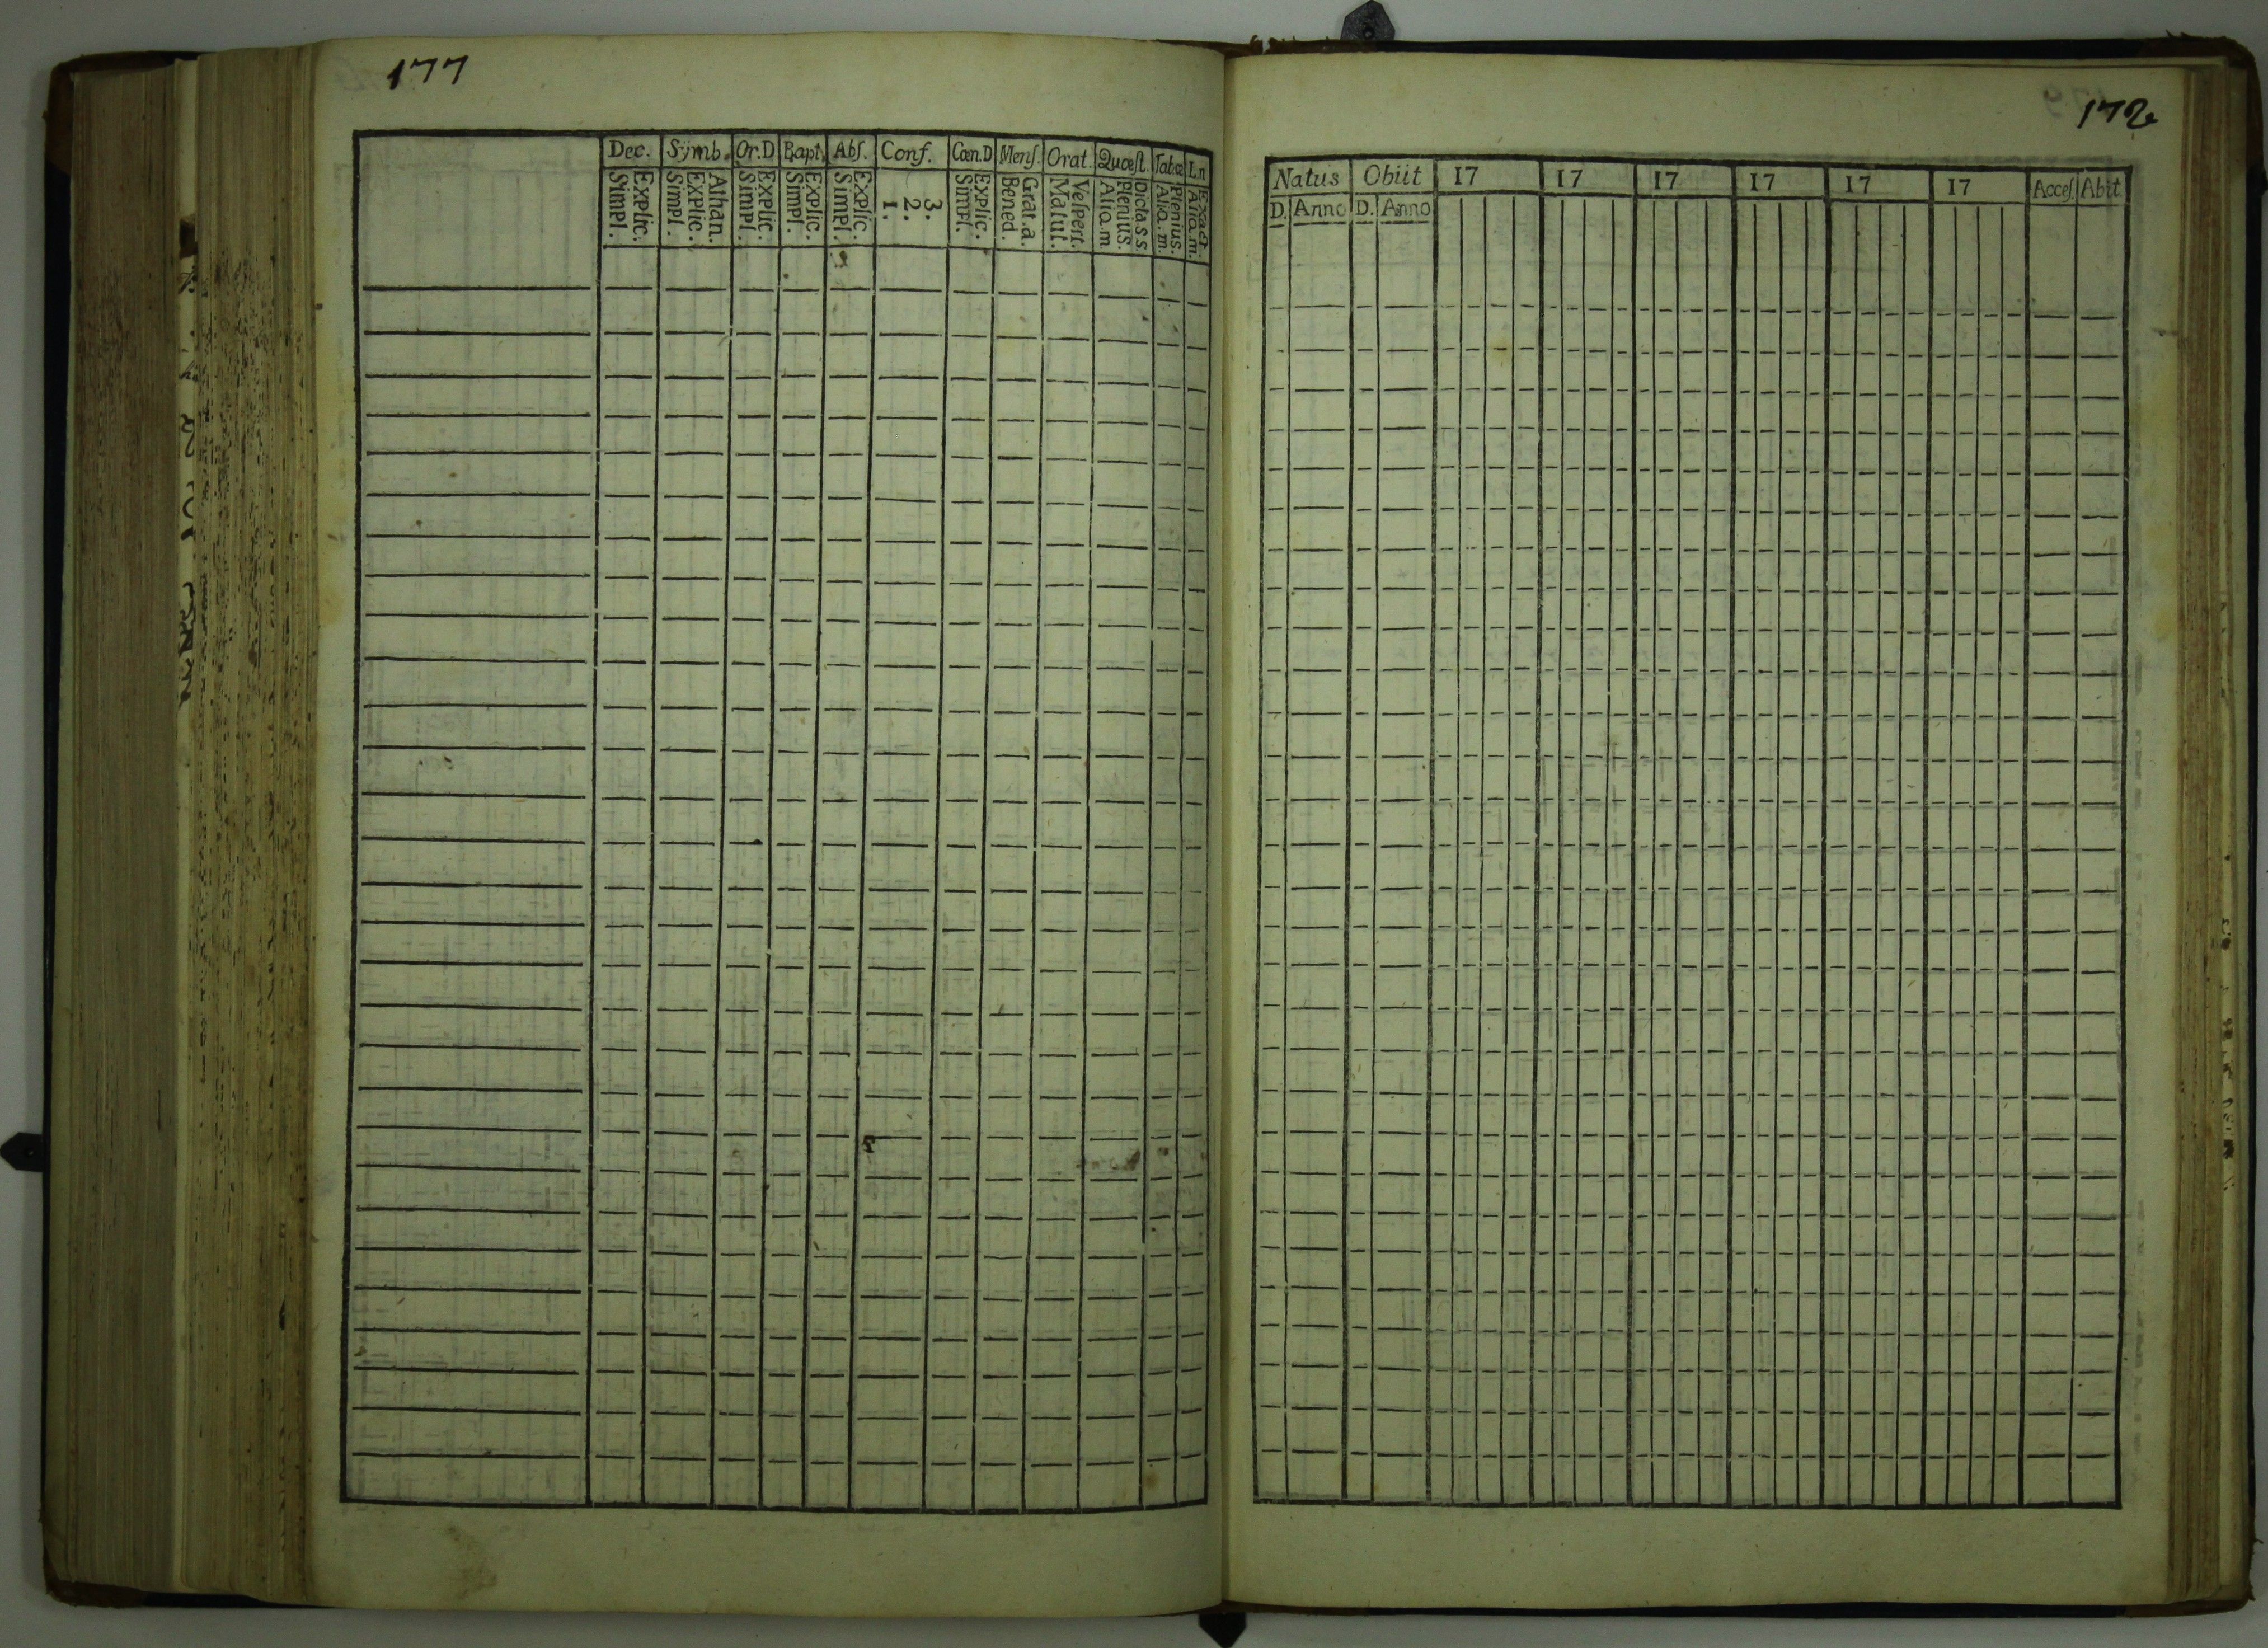 177
Dec. Sÿmb. Or.D Bapt. Abſ. Conf. Cœn.D Menſ. Orat. Quœſt. Tabœ L.n
Explic. Simpl. Athan. Explic. Simpl. Explic. Simpl. Explic. Simpl. Explic. Simpl. 3. 2. 1. Explic. Simpl. Grat.a. Bened. Veſpert. Matut. Dicta s s. Plenius. Aliq.m Plenius. Aliq.m. Exact. Aliq.m.
172
Natus Obiit 17 17 17 17 17 17 Acceſ. Abit
D. Anno D. Anno